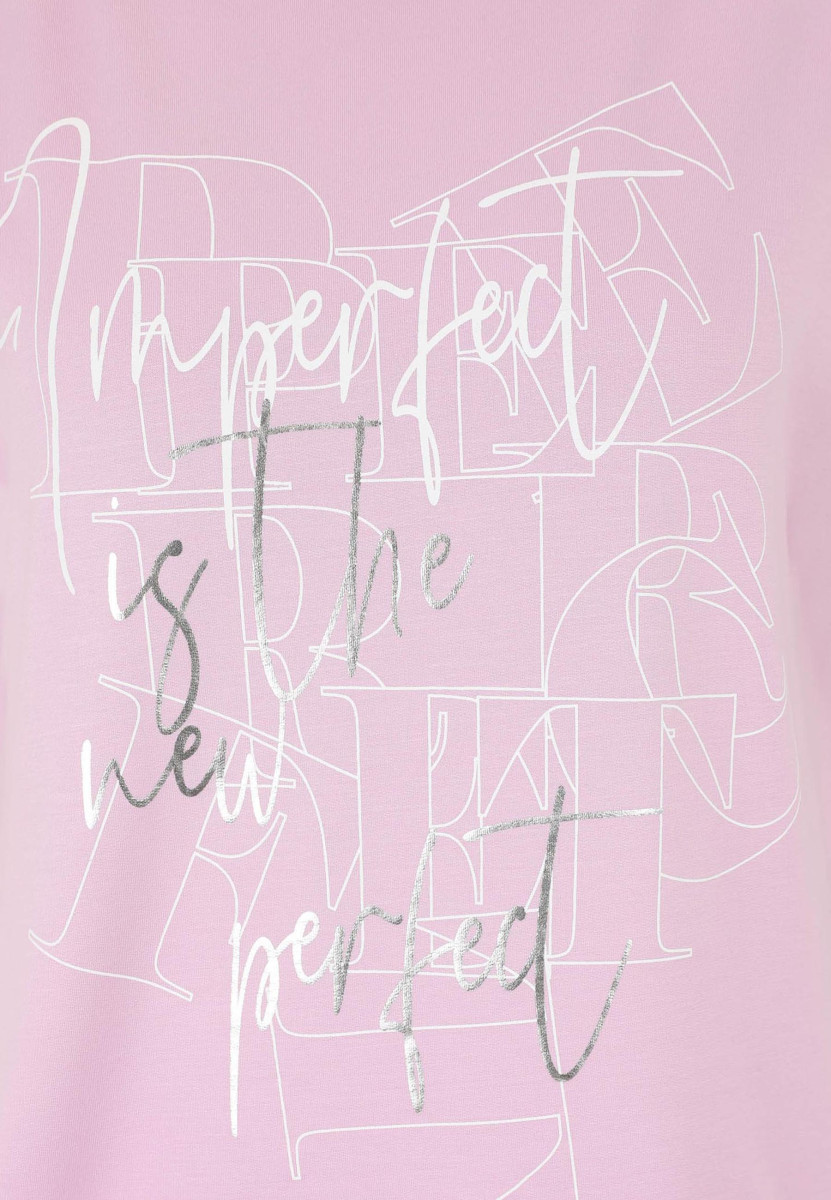 Imperfect
is the
new
perfect